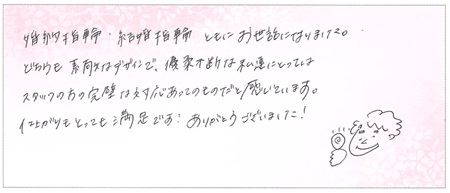 婚約指輪・結婚指輪 ともにお世話になりました。
どちらも 素敵なデザインで、優柔不断な私達にとっては
スタッフの方の完璧な対応あってのものだと感じています。
仕上がりもとっても満足です！ありがとうございました！